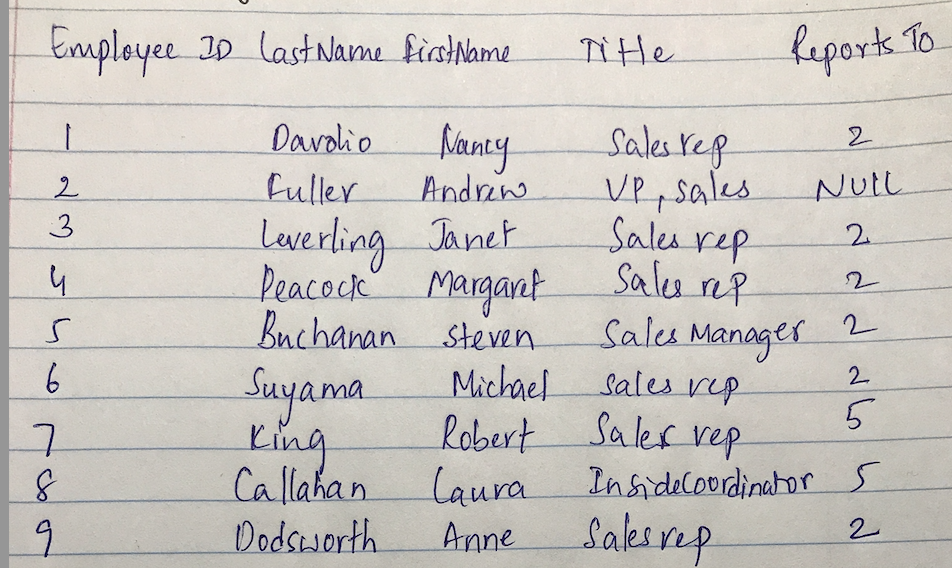 Employee ID LastName FirstName Title Reports To
1 Davolio Nancy Sales rep 2
2 Fuller Andrew VP, sales NULL
3 Leverling Janet Sales rep 2
4 Peacock Margaret Sales rep 2
5 Buchanan Steven Sales Manager 2
6 Suyama Michael sales rep 2
7 King Robert Sales rep 5
8 Callahan Laura InsideCoordinator 5
9 Dodsworth Anne Sales rep 2